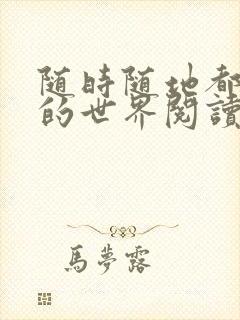 随時随地都
的世界閱讀
馬夢露